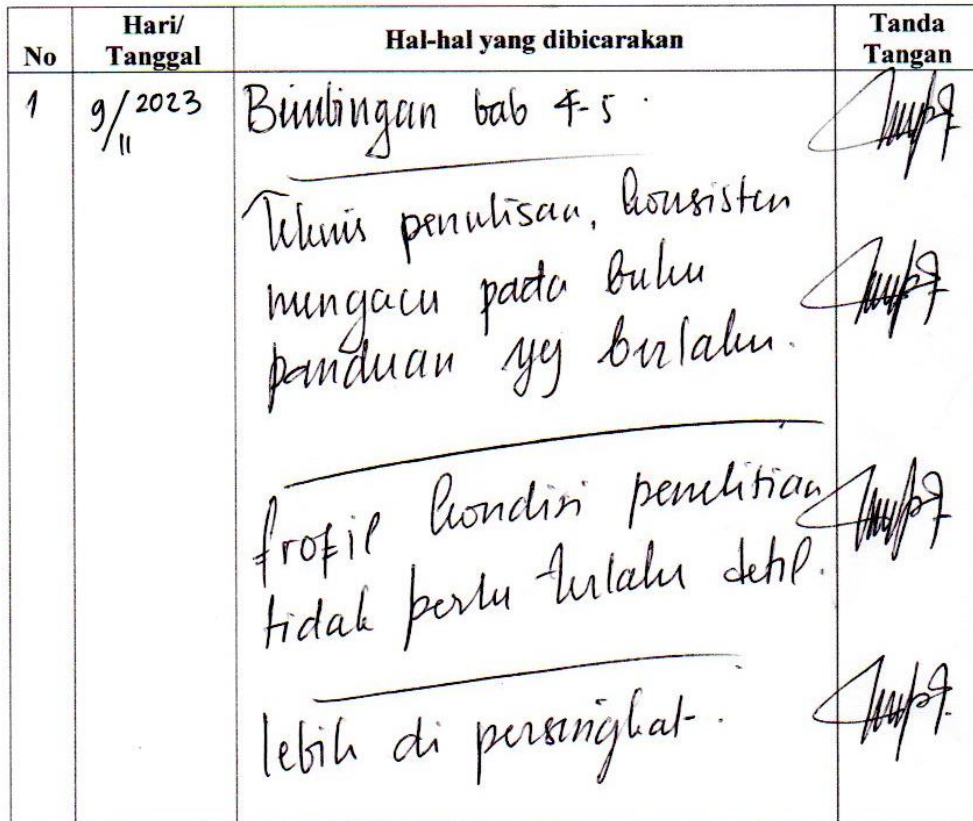 No
Hari/
Tanggal
Hal-hal yang dibicarakan
Tanda
Tangan
1
9/11 2023
Bimbingan bab 4-5.
Teknis penulisan, konsisten
mengacu pada buku
panduan yg berlaku.
Profil kondisi penelitian
tidak perlu terlalu detil.
lebih di persingkat.